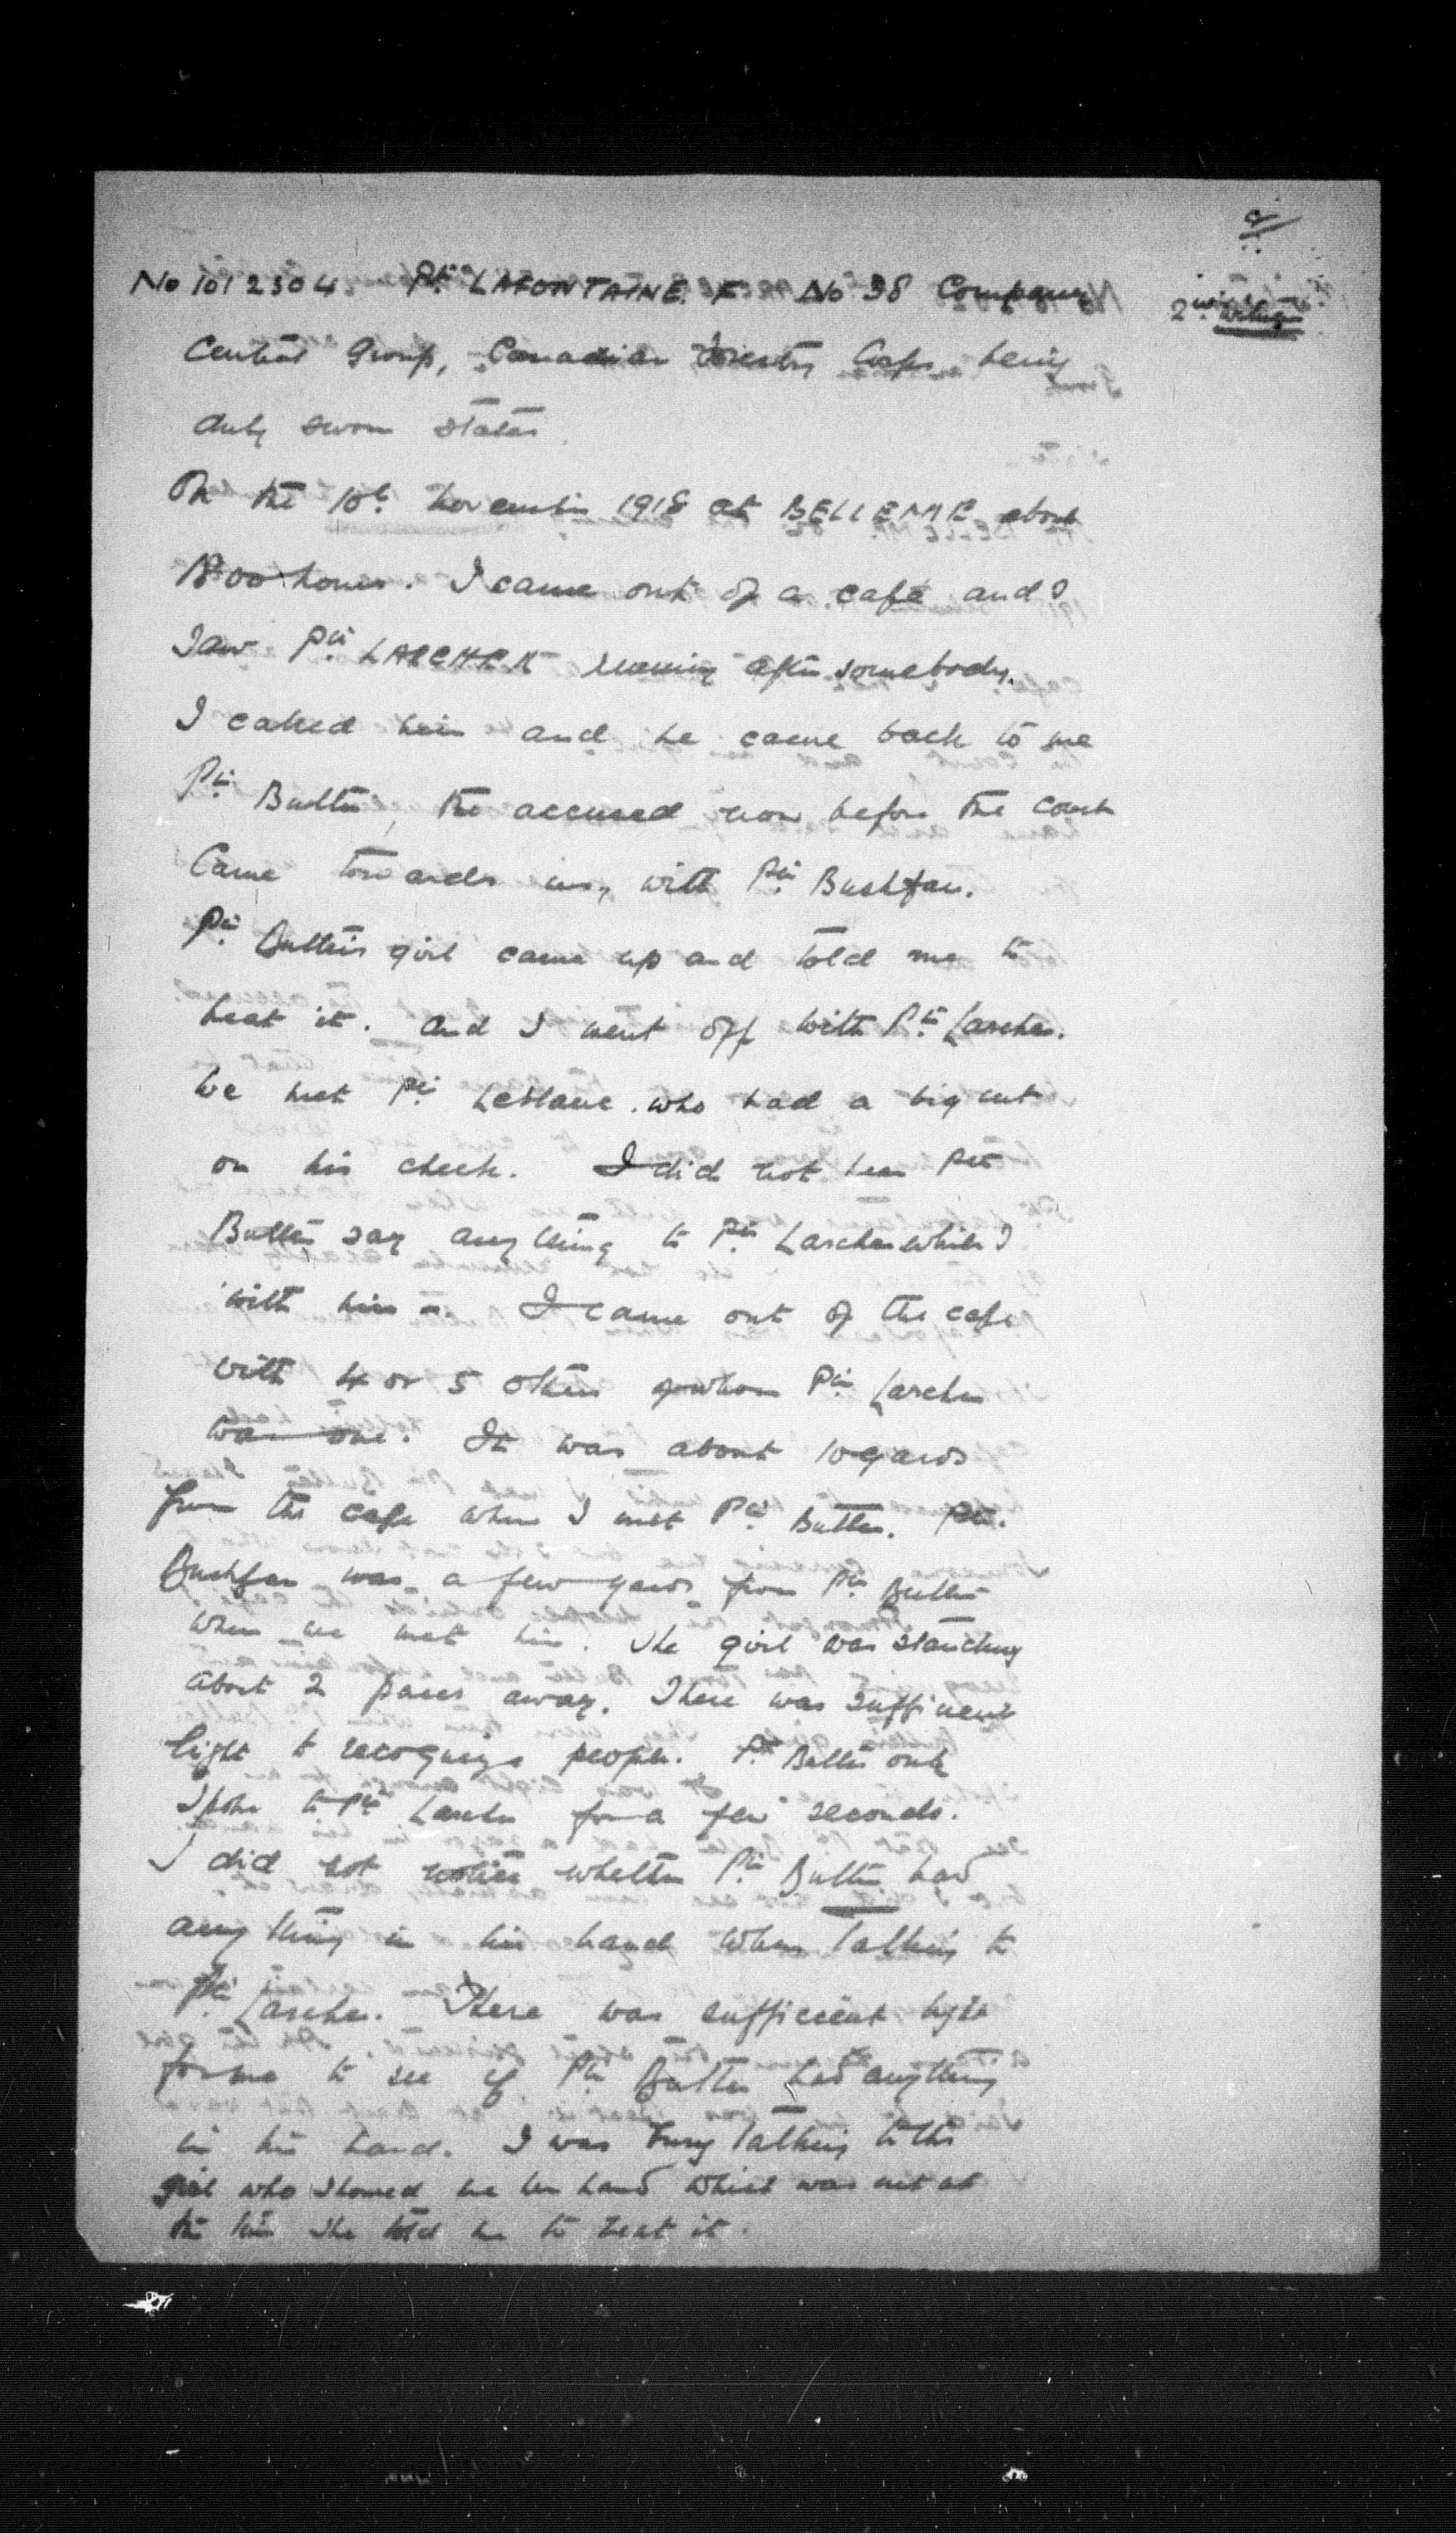 9/
No 1012304 Pte LAFONTAINE. F. No 38 Company
2nd witness
Central Group, Canadian Forestry Corps being
duly sworn states
On the 10th November 1918 at BELLEME about
1800 hours. I came out of a café and I
saw Pte LARCHER running after somebody.
I called him and he came back to me
Pte Butler, the accused now before the court
Came towards us, with Pte
Pte Butler's girl came up and told me to
beat it. and I went off with Pte Larcher.
We met Pte Leblanc who had a big cut
on his cheek. I did not hear Pte
Butler say anything to Pte Larcher while I
with him. I came out of the cafe
with 4 or 5 others of whom Pte Larcher
was one. It was about 10 yards
from the cafe when I met Pte Butler. Pte.
was a few yards from Pte Butler
when we met him. The girl was standing
about 2 paces away. There was sufficient
light to recognize people. Pte Butler only
spoke to Pte Larcher for a few seconds.
I did not notice whether Pte Butler had
anything in his hand when talking to
Pte Larcher. There was sufficient light
for me to see if Pte Butler had anything
in his hand. I was busy talking to the
girl who showed me her hand which was cut at
the time she told me to beat it.